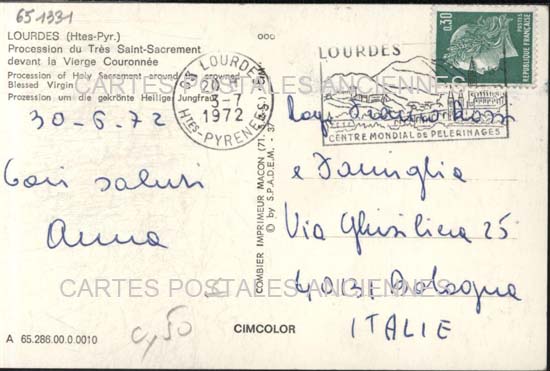 651331
LOURDES (Htes-Pyr.)
Procession du Très Saint-Sacrement
devant la Vierge Couronnée
Procession of Holy Sacrament around the crowned
Blessed Virgin
Prozession um die gekrönte Heilige Jungfrau
30-6-72
Cari saluti
Anna
A 65.286.00.0.0010
0,50
CIMCOLOR
COMBIER IMPRIMEUR MACON (71-
© by S.P.A.D.E.M. - 37
65 LOURDES
20 H
3-7
1972
Htes-PYRENEES
LOURDES
CENTRE MONDIAL DE PELERINAGES
0,30
REPUBLIQUE FRANÇAISE
e Famiglia
Via Ghisiliera 25
40131 Bologna
ITALIE
CARTES POSTALES ANCIENNES
CARTES POSTALES ANCIENNES